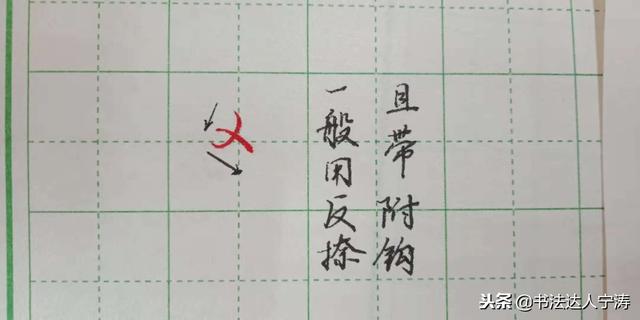 一般用反捺
且带附钩
头条@书法达人宁涛